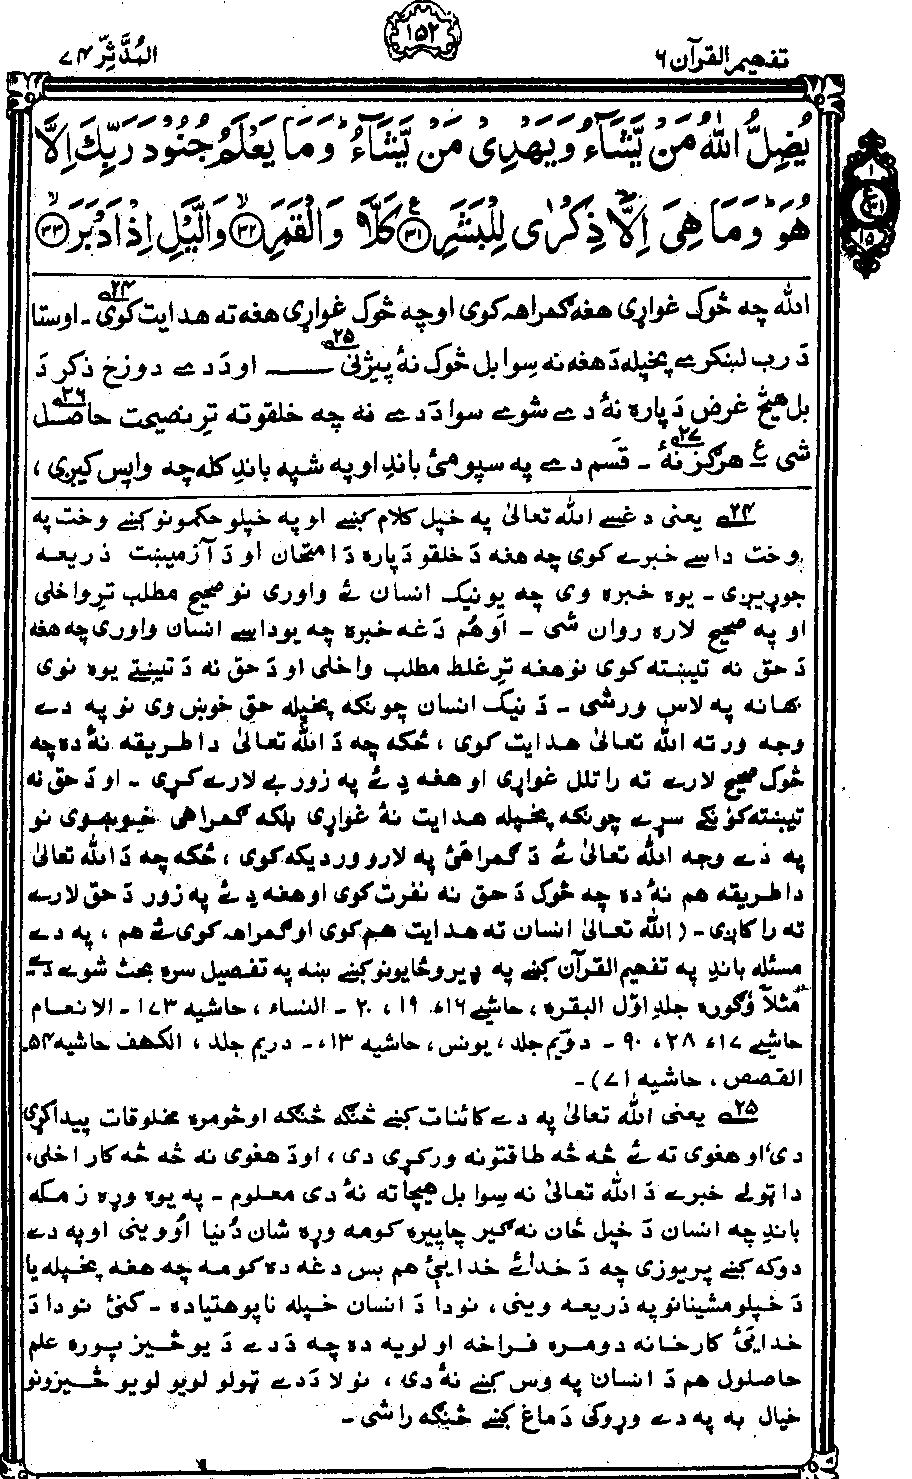 تفهیم القرآن ۶
۱۵۲
المُدَّثِّر ۷۴
يُضِلُّ اللّٰهُ مَنْ يَّشَآءُ وَيَهْدِىْ مَنْ يَّشَآءُ ؕ وَمَا يَعْلَمُ جُنُوْدَ رَبِّكَ اِلَّا
هُوَ ؕ وَمَا هِىَ اِلَّا ذِكْرٰى لِلْبَشَرِ ﴿۳۱﴾ كَلَّا وَالْقَمَرِ ﴿۳۲﴾ وَالَّيْلِ اِذْ اَدْبَرَ ﴿۳۳﴾
۱
ع
۳۱
۱۵
الله چه څوک غواړی هغه گمراهـ کوی او چه څوک غواړی هغه ته هدایت کوی ۲۴ـ او ستا
دَ رب لښکرے پخپله دَ هغه نه سِوا بل څوک نۀ پیژنی ۲۵ـــ او دَ دے دوزخ ذکر دَ
بل هیڅ غرض دَ پاره نۀ دے شوے سوا دَ دے نه چه خلقو ته ترِ نصیحت حاصل ۲۶
شی ع هرگز نۀ ۲۷ـ قسم دے په سپوږمئ باندِ او په شپه باندِ کله چه واپس کیږی ،
۲۴ یعنی دغسے الله تعالیٰ په خپل کلام کښے او په خپلو حکمونو کښے وخت په
وخت داسے خبرے کوی چه هغه دَ خلقو دَ پاره دَ امتحان او دَ آزمیښت ذریعه
جوړیږی ـ یوه خبره وی چه یو نیک انسان ئے واوری نو صحیح مطلب ترِ واخلی
او په صحیح لاره روان شی ـ او هُم دَغه خبره چه یو داسے انسان واوری چه هغه
دَ حق نه تیښته کوی نو هغه ترِ غلط مطلب واخلی او دَ حق نه دَ تیښتے یوه نوی
بهانه په لاس ورشی ـ دَ نیک انسان چونکه پخپله حق خوښ وی نو په دے
وجه ورته الله تعالیٰ هدایت کوی ، ځکه چه دَ الله تعالیٰ دا طریقه نۀ ده چه
څوک صحیح لارے ته راتلل غواړی او هغه دِ ئے په زور بے لارے کړی ـ او دَ حق نه
تیښته کوُنکے سړے چونکه پخپله هدایت نۀ غواړی بلکه گمراهی خوښوی نو
په دے وجه الله تعالیٰ ئے دَ گمراهئ په لارو ور دیکه کوی ، ځکه چه دَ الله تعالیٰ
دا طریقه هم نۀ ده چه څوک دَ حق نه نفرت کوی او هغه دِ ئے په زور دَ حق لارے
ته راکاږی ـ (الله تعالیٰ انسان ته هدایت هم کوی او گمراهـ کوی ئے هم ، په دے
مسئله باندِ په تفهیم القرآن کښے په ډیرو ځایونو کښے ښه په تفصیل سره بحث شوے دے
مثلاً وُگوره جلدِ اوّل البقره ، حاشیے ۱۶، ۱۹ ، ۲۰ ـ النساء ، حاشیه ۱۷۳ ـ الانعام
حاشیے ۱۷، ۲۸، ۹۰ ـ دوٙیم جلد ، یونس ، حاشیه ۱۳ ـ دریم جلد ، الکهف حاشیه ۵۴ـ
القصص ، حاشیه ۷۱) ـ
۲۵ یعنی الله تعالیٰ په دے کائنات کښے څنگه څنگه او څومره مخلوقات پیدا کړی
دی او هغوی ته ئے څه څه طاقتونه ورکړی دی ، او دَ هغوی نه څه څه کار اخلی،
دا ټولے خبرے دَ الله تعالیٰ نه سِوا بل هیچا ته نۀ دی معلوم ـ په یوه وړه زمکه
باندِ چه انسان دَ خپل ځان نه گیر چاپیره کومه وړه شان دُنیا اوُوینی او په دے
دوکه کښے پریوزی چه دَ خدائے خدایئ هم بس دغه ده کومه چه هغه پخپله یا
دَ خپلو مشینانو په ذریعه وینی ، نو دا دَ انسان خپله ناپوهتیا ده ـ کنئ نو دا دَ
خدایئ کارخانه دومره فراخه او لویه ده چه دَ دے دَ یو څیز پوره علم
حاصلول هم دَ انسان په وس کښے نۀ دی ، نو لا دَ دے ټولو لویو لویو څیزونو
خیال به په دے وړوکی دماغ کښے څنگه راشی ـ